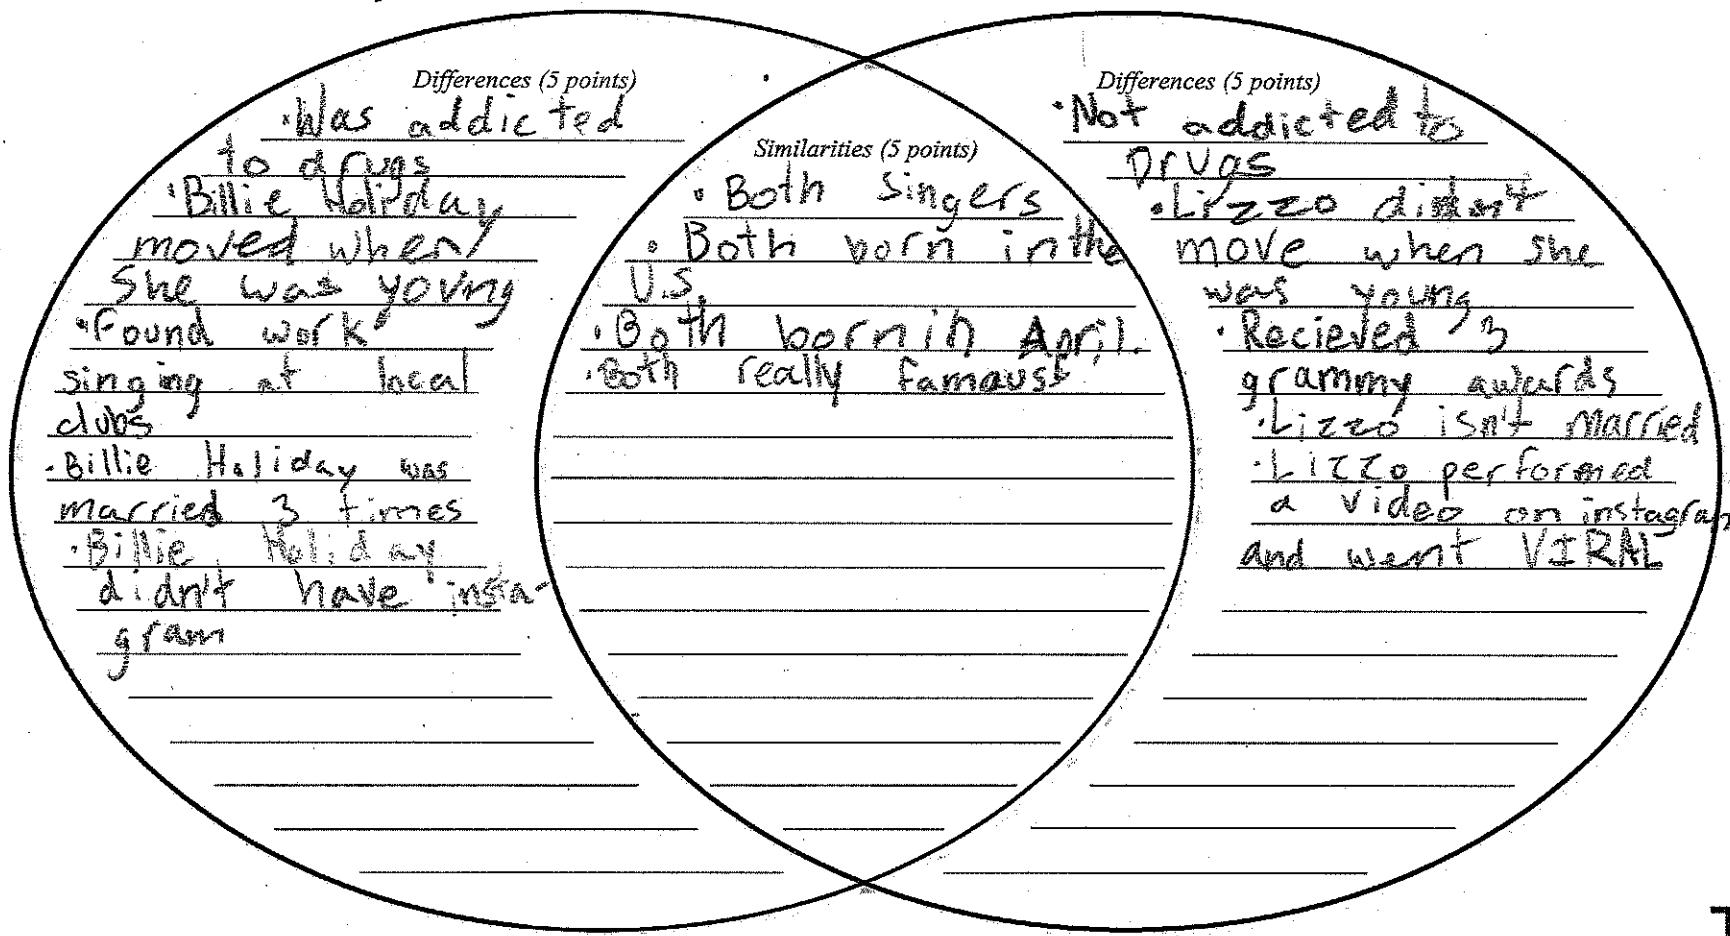 Differences (5 points)
•Was addicted
to drugs
•Billie Holiday
moved when
she was yoving
•Found work
singing at local
clubs
•Billie Holiday was
married 3 times
•Billie Holiday
didn't have insta-
gram
Similarities (5 points)
• Both singers
• Both born in the
U.S.
•Both born in April.
•Both really famous
Differences (5 points)
•Not addicted to
Drugs
•Lizzo didn't
move when she
was young
•Recieved 3
grammy awards
•Lizzo isn't married
•Lizzo performed
a video on instagram
and went VIRAL
T